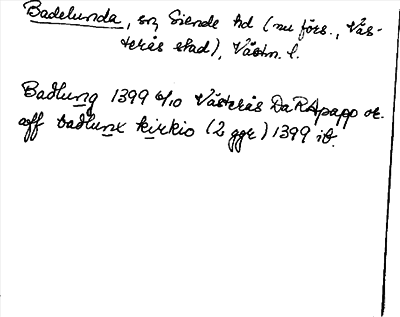 Badelunda, sn, Siende hd (nu förs., Väs-
terås stad), Västm. l.
Badlung 1399 6/10 Västerås DaRApapp or.
aff badlunx kirkio (2 ggr) 1399 ib.